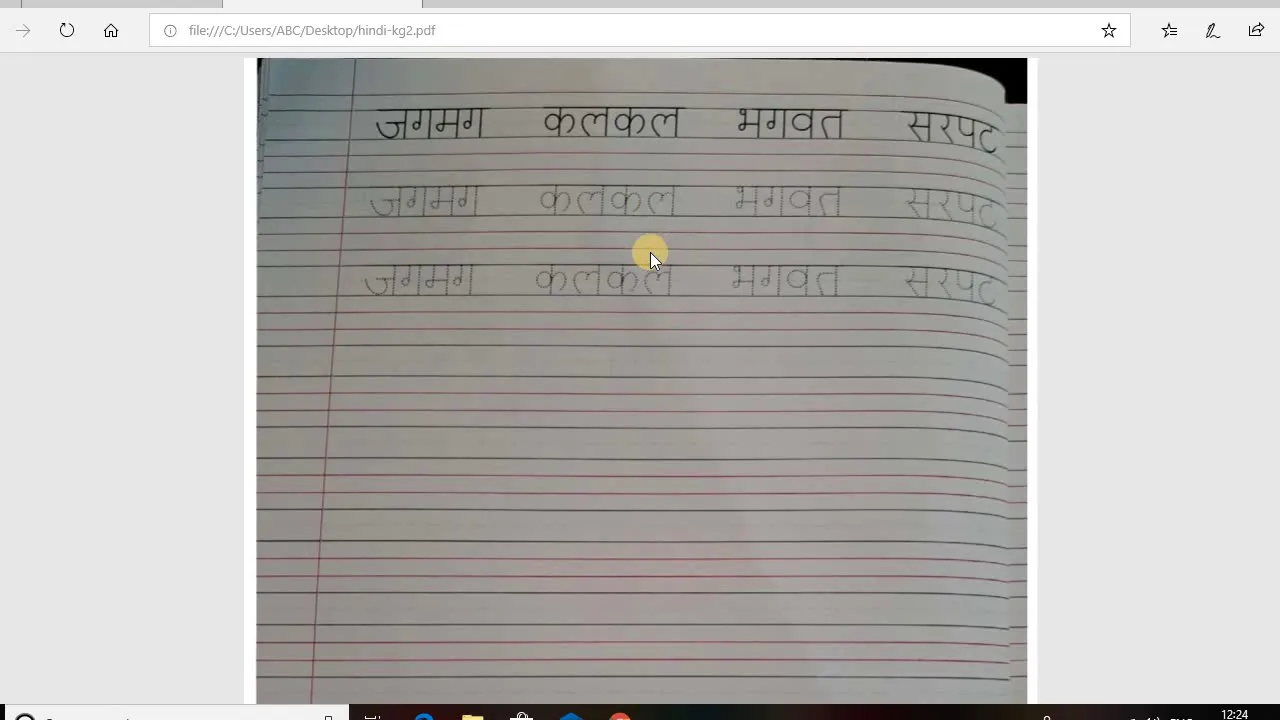 file:///C:/Users/ABC/Desktop/hindi-kg2.pdf
जगमग कलकल भगवत सरपट
जगमग कलकल भगवत सरपट
जगमग कलकल भगवत सरपट
12:24